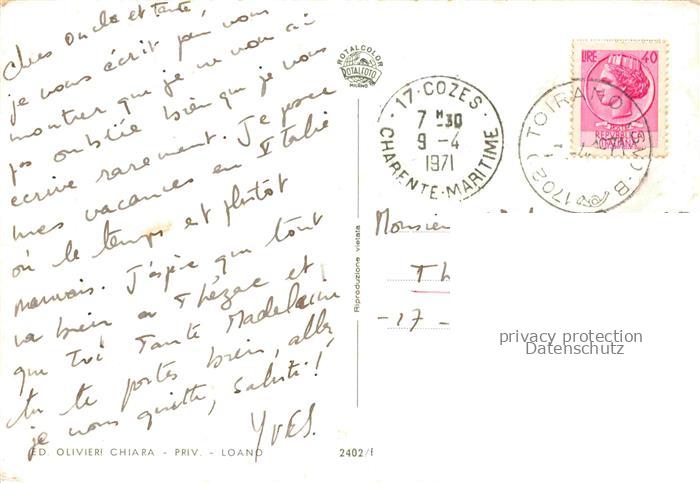 Chers oncle et tante,
je vous écrit pour vous
montrer que je ne vous ai
pas oubliée bien que je vous
écrive rarement. Je passe
mes vacances en Italie
où le temps est plutôt
mauvais. J'espère que tout
va bien a Thézac et
que toi Tante Madeleine
tu te portes bien, allez
je vous quitte, Saluti!
YVES.
ED. OLIVIERI CHIARA - PRIV. - LOANO
2402/
ROTALCOLOR
ROTALFOTO
MILANO
Riproduzione vietata
17 · COZES
7 H30
9 - 4
1971
CHARENTE-MARITIME
LIRE 40
POSTE
REPUBBLICA
ITALIANA
TOIRANO (SV) · B
(1702)
Monsieur
Th
- 17 -
privacy protection
Datenschutz